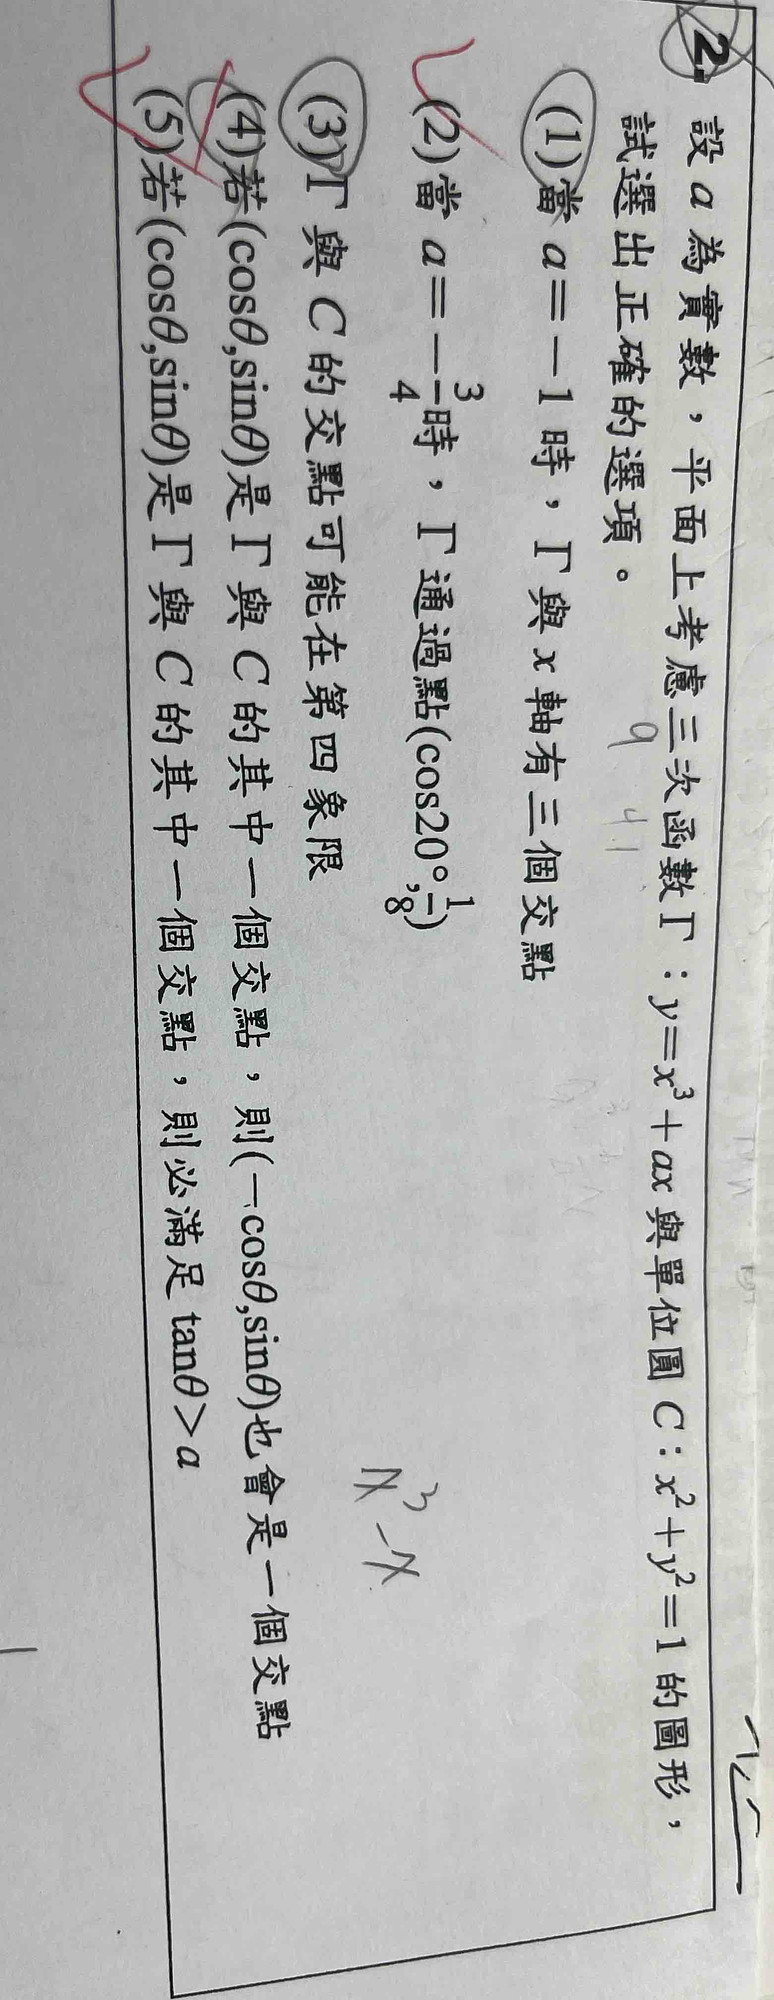 2. 設 a 為實數，平面上考慮三次函數 Γ：y=x³+ax 與單位圓 C：x²+y²=1 的圖形，
試選出正確的選項。
9 4.1
(1)當 a=－1 時，Γ 與 x 軸有三個交點
(2)當 a=－3/4時，Γ 通過點(cos20°,1/8)
(3)Γ 與 C 的交點可能在第四象限
x³-x
(4)若(cosθ,sinθ)是 Γ 與 C 的其中一個交點，則(－cosθ,sinθ)也會是一個交點
(5)若(cosθ,sinθ)是 Γ 與 C 的其中一個交點，則必滿足 tanθ>a